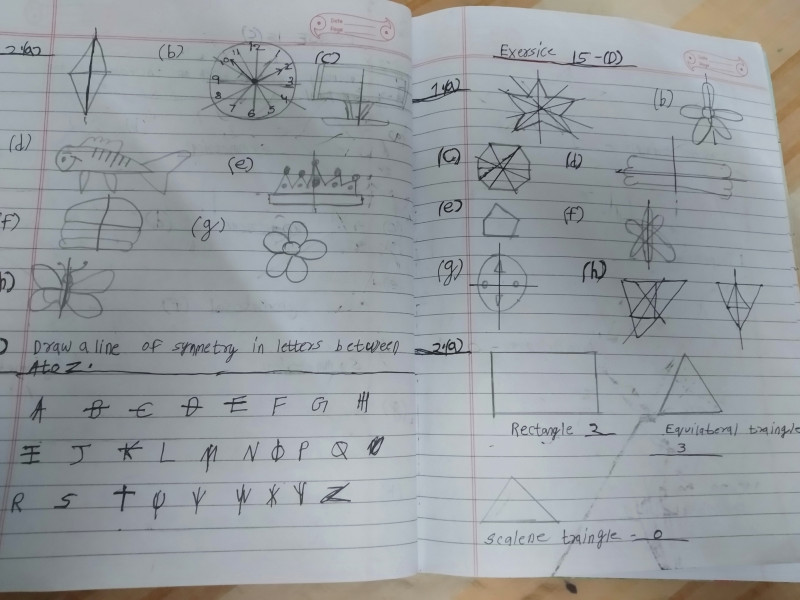 Date
Page
2.(a)
(b)
12
11
10
2
9
3
8
4
7
6
5
(c)
(d)
(e)
(f)
(g)
(h)
Draw a line of symmetry in letters between
A to Z.
A B C D E F G H
I J K L M N O P Q
R S T U V W X Y Z
Exersice 15-(D)
1.(a)
(b)
(c)
(d)
(e)
(f)
(g)
(h)
2.(a)
Rectangle 2
Equilateral traingle
3
Scalene traingle - 0